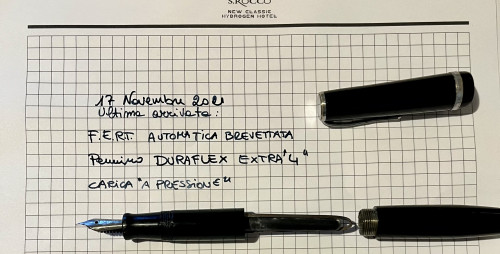 S.ROCCO
NEW CLASSIC
HYDROGEN HOTEL
17 Novembre 2021
Ultima arrivata:
F.E.R.T. AUTOMATICA BREVETTATA
Pennino DURAFLEX EXTRA "4"
CARICA "A PRESSIONE"